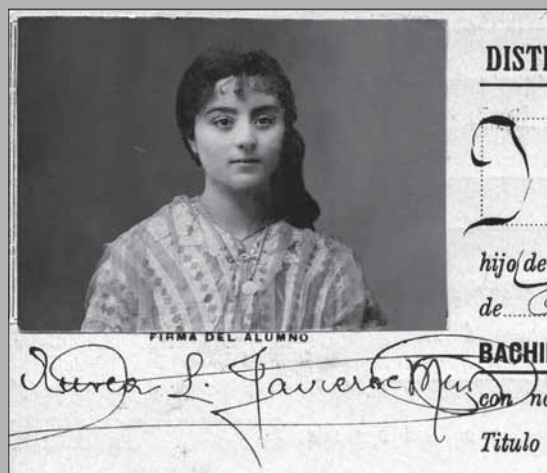 DIST
D
hijo de
de
FIRMA DEL ALUMNO
Aurea L. Javierre Mur
BACHI
con no
Titulo